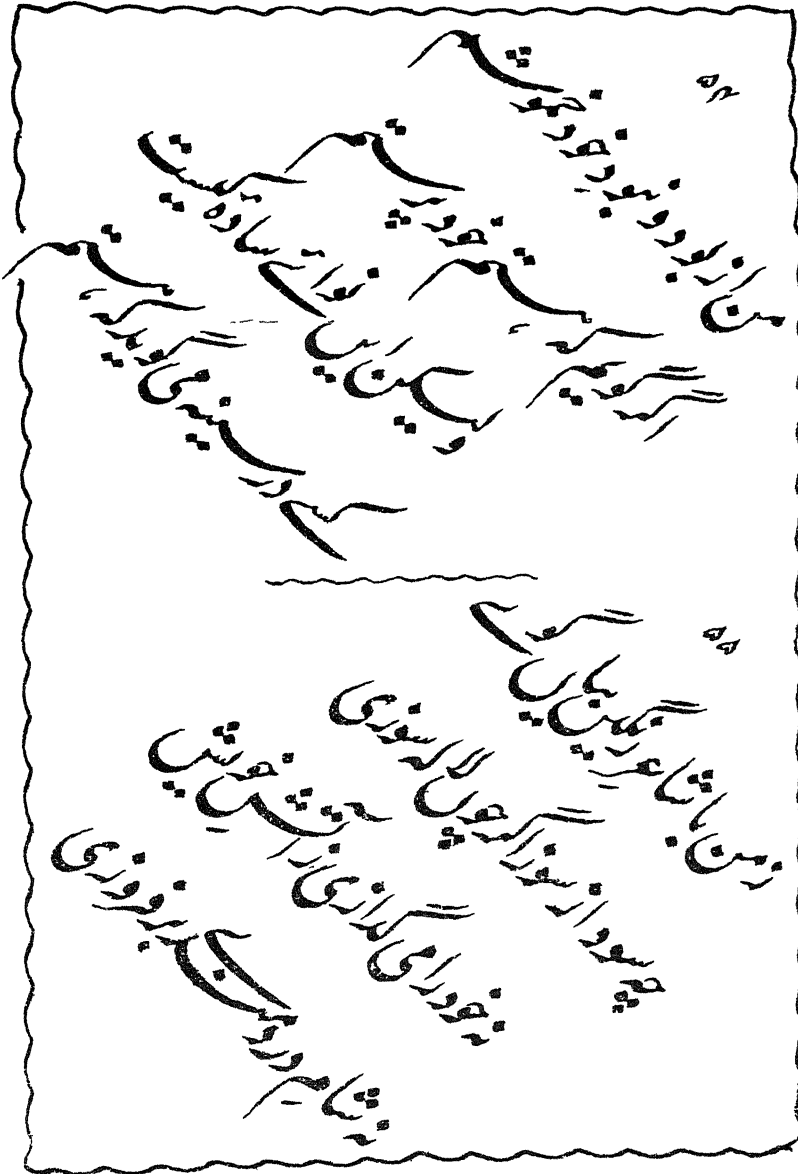 ۵۴
من از بود و نبود خود خموشم
اگر گویم که هستم خود پرستم
ولیکن این نوائے ساده کیست
کسے در سینه می گوید که هستم
۵۵
ز من با شاعر رنگین بیان گوے
چه سود از سوز اگر چون لاله سوزی
نه خود را می گدازی ز آتش خویش
نه شام دردمندے بر فروزی